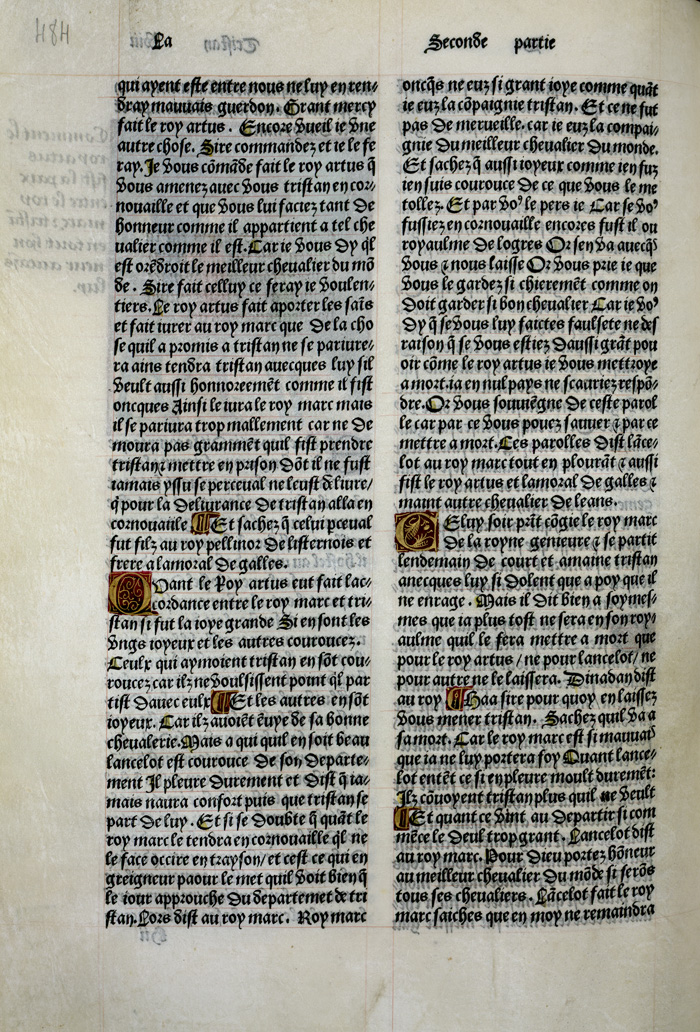 484
La
Seconde partie
qui ayent este entre nous ne luy en ren⸗
dray mauuais guerdon. Grant mercy
fait le roy artus. Encore vueil ie vne
autre chose. Sire commandez et ie le fe
ray. Je vous cõmãde fait le roy artus q̃
vous amenez auec vous tristan en cor⸗
nouaille et que vous lui faciez tant de
honneur comme il appartient a tel che
ualier comme il est. Car ie vous dy q̃l
est orẽdroit le meilleur cheualier du mõ
de. Sire fait celluy ce feray ie voulen⸗
tiers. Le roy artus fait aporter les sais
et fait iurer au roy marc que de la cho
se quil a promis a tristan ne se pariure⸗
ra ains tendra tristan auecques luy sil
veult aussi honnoreemẽt comme il fist
oncques Ainsi le iura le roy marc mais
il se pariura trop mallement car ne de
moura pas grammẽt quil fist prendre
tristan ⁊ mettre en prison dõt il ne fust
iamais yssu se perceual ne leust deliure/
q̃ pour la deliurance de tristan alla en
cornouaille ¶ Et sachez q̃ celui pceual
fut filz au roy pellinor de listernois et
frere a lamoral de galles.
Quant le Roy artus eut fait lac⸗
cordance entre le roy marc et tri⸗
stan si fut la ioye grande Si en sont les
vngs ioyeux et les autres couroucez.
Ceulx qui aymoient tristan en sõt cou⸗
roucez car ilz ne voulsissent point q̃l par
tist dauec eulx ¶ Et les autres en sõt
ioyeux. Car ilz auoiẽt ẽuye de sa bonne
cheualerie. Mais a qui quil en soit beau
lancelot est courouce de son departe⸗
ment Il pleure durement et dist q̃ ia⸗
mais naura confort puis que tristan se
part de luy. Et si se doubte q̃ quãt le
roy marc le tendra en cornouaille q̃l ne
le face occire en trayson/ et cest ce qui en
greigneur paour le met quil voit bien q̃
le iour approuche du departemẽt de tri
stan. Lors dist au roy marc. Roy marc
oncq̃s ne euz si grant ioye comme quãt
ie euz la cõpaignie tristan. Et ce ne fut
pas de merueille. car ie euz la compai⸗
gnie du meilleur cheualier du monde.
Et sachez q̃ aussi ioyeux comme ien fuz
ien suis courouce de ce que vous le me
tollez. Et par vo⁹ le pers ie Car se vo⁹
fussiez en cornouaille encores fust il ou
royaulme de logres Or sen va auecq̃s
vous ⁊ nous laisse Or vous prie ie que
vous le gardez si chierement comme on
doit garder si bon cheualier Car ie vo⁹
dy q̃ se vous luy faictes faulsete ne des
raison q̃ se vous estiez daussi grãt pou
oir cõme le roy artus ie vous mettroye
a mort. ia en nul pays ne scauriez respõ⸗
dre. Or vous souuiẽgne de ceste parol
le car par ce vous pouez sauuer ⁊ par ce
mettre a mort. Ces parolles dist lãce⸗
lot au roy marc tout en plourãt ⁊ aussi
fist le roy artus et lamoral de galles ⁊
maint autre cheualier de leans.
Celuy soir prĩt cõgie le roy marc
de la royne genieure ⁊ se partit
lendemain de court et amaine tristan
anecques luy si dolent que a poy que il
ne enrage. Mais il dit bien a soymes⸗
mes que ia plus tost ne sera en son roy⸗
aulme quil le fera mettre a mort que
pour le roy artus / ne pour lancelot/ ne
pour autre ne le laissera. Dinadan dist
au roy ¶ Haa sire pour quoy en laissez
vous mener tristan. Sachez quil va a
sa mort. Car le roy marc est si mauuais
que ia ne luy portera foy Quant lance⸗
lot entẽt ce si en pleure moult duremẽt:
Ilz cõuoyent tristan plus quil ne veult
¶ Et quant ce vint au departir si com
mẽce le deul trop grant. Lancelot dist
au roy marc. Pour dieu portez hõneur
au meilleur cheualier du mõde si serõs
tous ses cheualiers. Lãcelot fait le roy
marc saiches que en moy ne remaindra